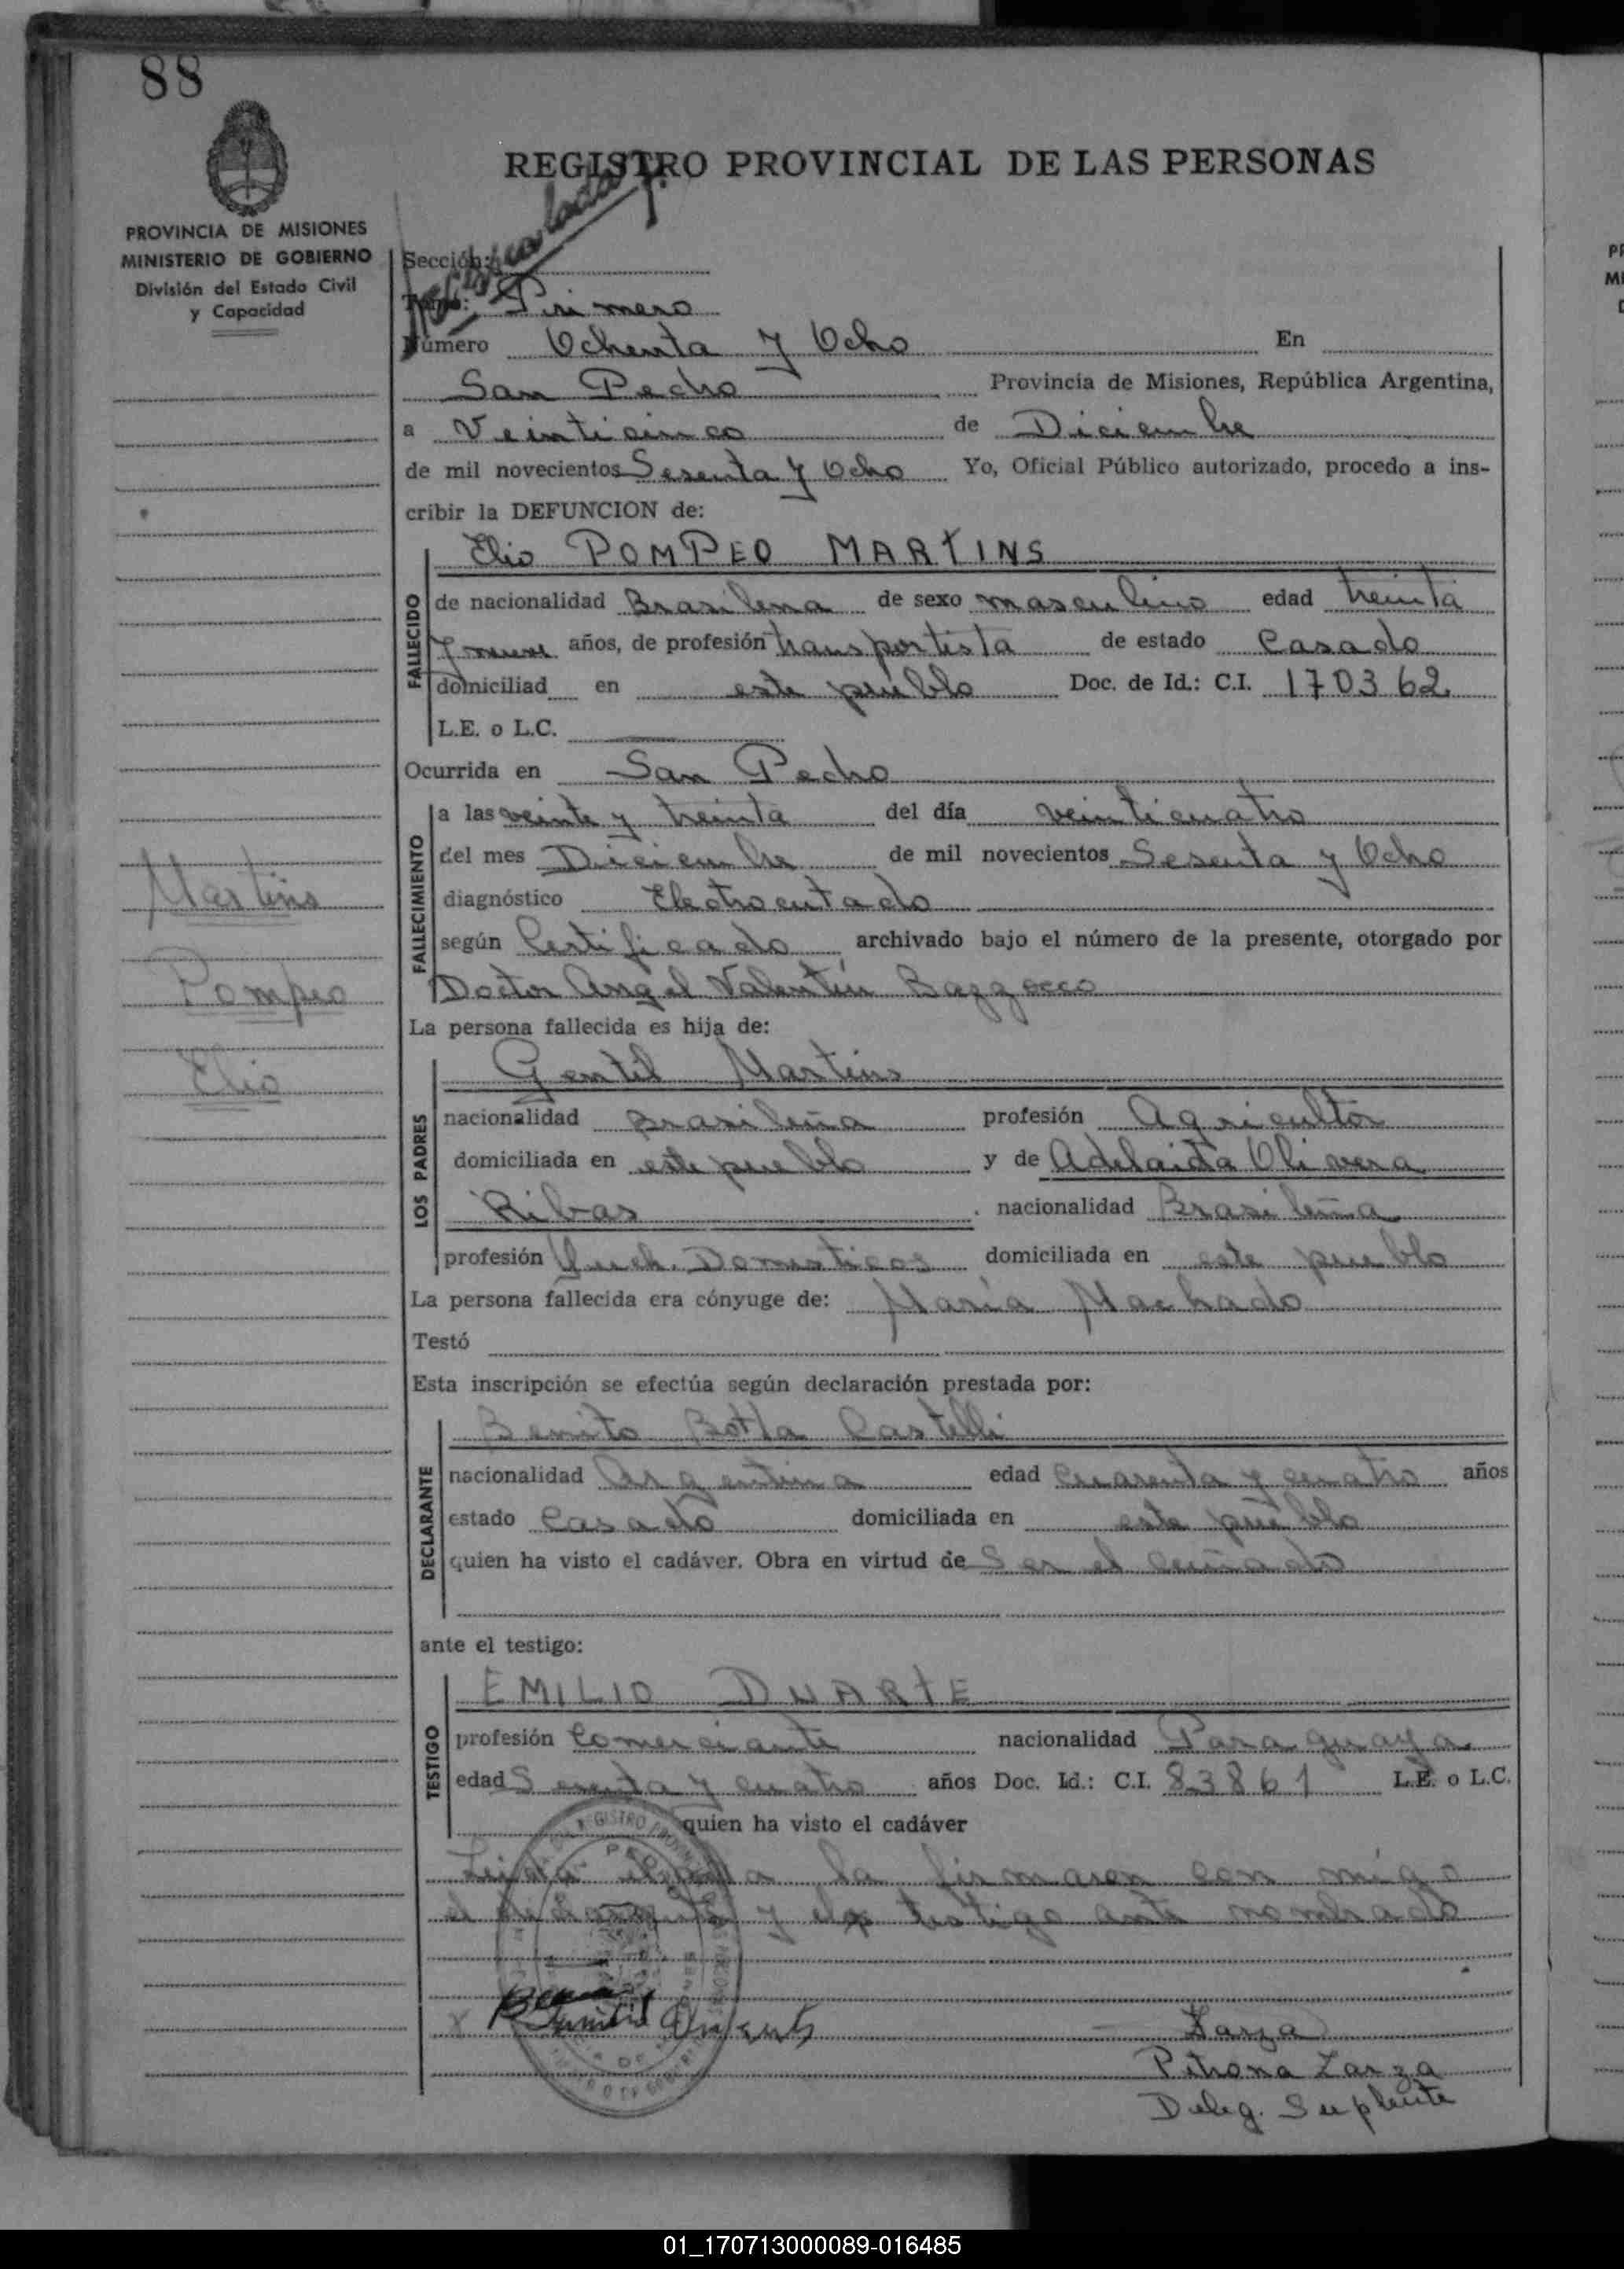 88
REGISTRO PROVINCIAL DE LAS PERSONAS
PROVINCIA DE MISIONES
MINISTERIO DE GOBIERNO
División del Estado Civil
y Capacidad
Sección:
Tomo: Primero
Número Ochenta y Ocho En
San Pedro Provincia de Misiones, República Argentina,
a Veinticinco de Diciembre
de mil novecientos Sesenta y Ocho Yo, Oficial Público autorizado, procedo a ins-
cribir la DEFUNCION de:
Elio POMPEO MARTINS
FALLECIDO
de nacionalidad Brasilena de sexo masculino edad treinta
y nueve años, de profesión transportista de estado Casado
domiciliad en este pueblo Doc. de Id.: C.I. 170362
L.E. o L.C.
Ocurrida en San Pedro
FALLECIMIENTO
a las veinte y treinta del día veinticuatro
del mes Diciembre de mil novecientos Sesenta y Ocho
diagnóstico Electrocutado
según Certificado archivado bajo el número de la presente, otorgado por
Doctor Angel Valentín Bazzocco
Martins
Pompeo
Elio
La persona fallecida es hija de:
LOS PADRES
Gentil Martins
nacionalidad Brasileña profesión Agricultor
domiciliada en este pueblo y de Adelaida Olivera
Ribas . nacionalidad Brasileña
profesión Queh. Domesticos domiciliada en este pueblo
La persona fallecida era cónyuge de: María Machado
Testó
Esta inscripción se efectúa según declaración prestada por:
DECLARANTE
Benito Botta Castelli
nacionalidad Argentina edad Cuarenta y cuatro años
estado Casado domiciliada en este pueblo
quien ha visto el cadáver. Obra en virtud de Ser el cuñado
ante el testigo:
TESTIGO
EMILIO DUARTE
profesión Comerciante nacionalidad Paraguaya
edad Sesenta y cuatro años Doc. Id.: C.I. 83861 L.E. o L.C.
quien ha visto el cadáver
Leida el acta la firmaron con migo
el declarante y el testigo ante nombrado
Zarza
Petrona Zarza
Deleg. Suplente
01_170713000089-016485